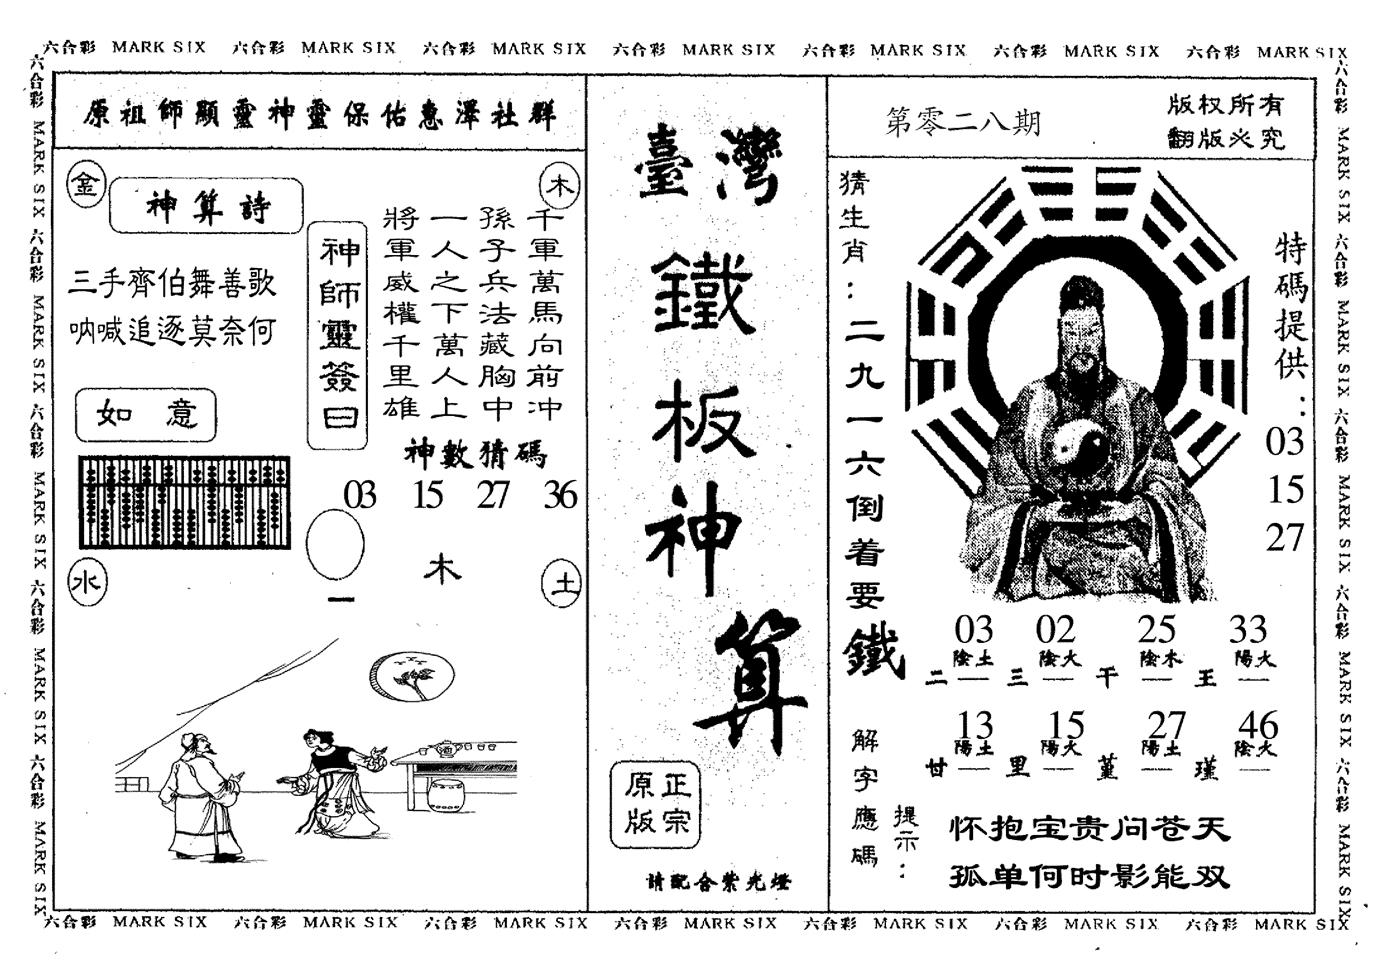 六合彩 MARK SIX 六合彩 MARK SIX 六合彩 MARK SIX 六合彩 MARK SIX 六合彩 MARK SIX 六合彩 MARK SIX 六合彩 MARK SIX
六合彩 MARK SIX 六合彩 MARK SIX 六合彩 MARK SIX 六合彩 MARK SIX 六合彩 MARK SIX
原祖師顯靈神靈保佑惠澤社群
金
木
神算詩
三手齊伯舞善歌
呐喊追逐莫奈何
如意
神師靈簽曰
千軍萬馬向前冲
孫子兵法藏胸中
一人之下萬人上
將軍威權千里雄
神數猜碼
03 15 27 36
水
一
木
土
臺灣
鐵
板
神
算
正宗
原版
請配合紫光燈
第零二八期
版权所有
翻版必究
猜生肖：二九一六倒着要
特碼提供：
03
15
27
鐵
03 02 25 33
陰土 陰火 陰木 陽火
二 三 干 王
13 15 27 46
陽土 陽火 陽土 陰火
廿 里 堇 瑾
解字應碼
提示：
怀抱宝贵问苍天
孤单何时影能双
六合彩 MARK SIX 六合彩 MARK SIX 六合彩 MARK SIX 六合彩 MARK SIX 六合彩 MARK SIX
六合彩 MARK SIX 六合彩 MARK SIX 六合彩 MARK SIX 六合彩 MARK SIX 六合彩 MARK SIX 六合彩 MARK SIX 六合彩 MARK SIX